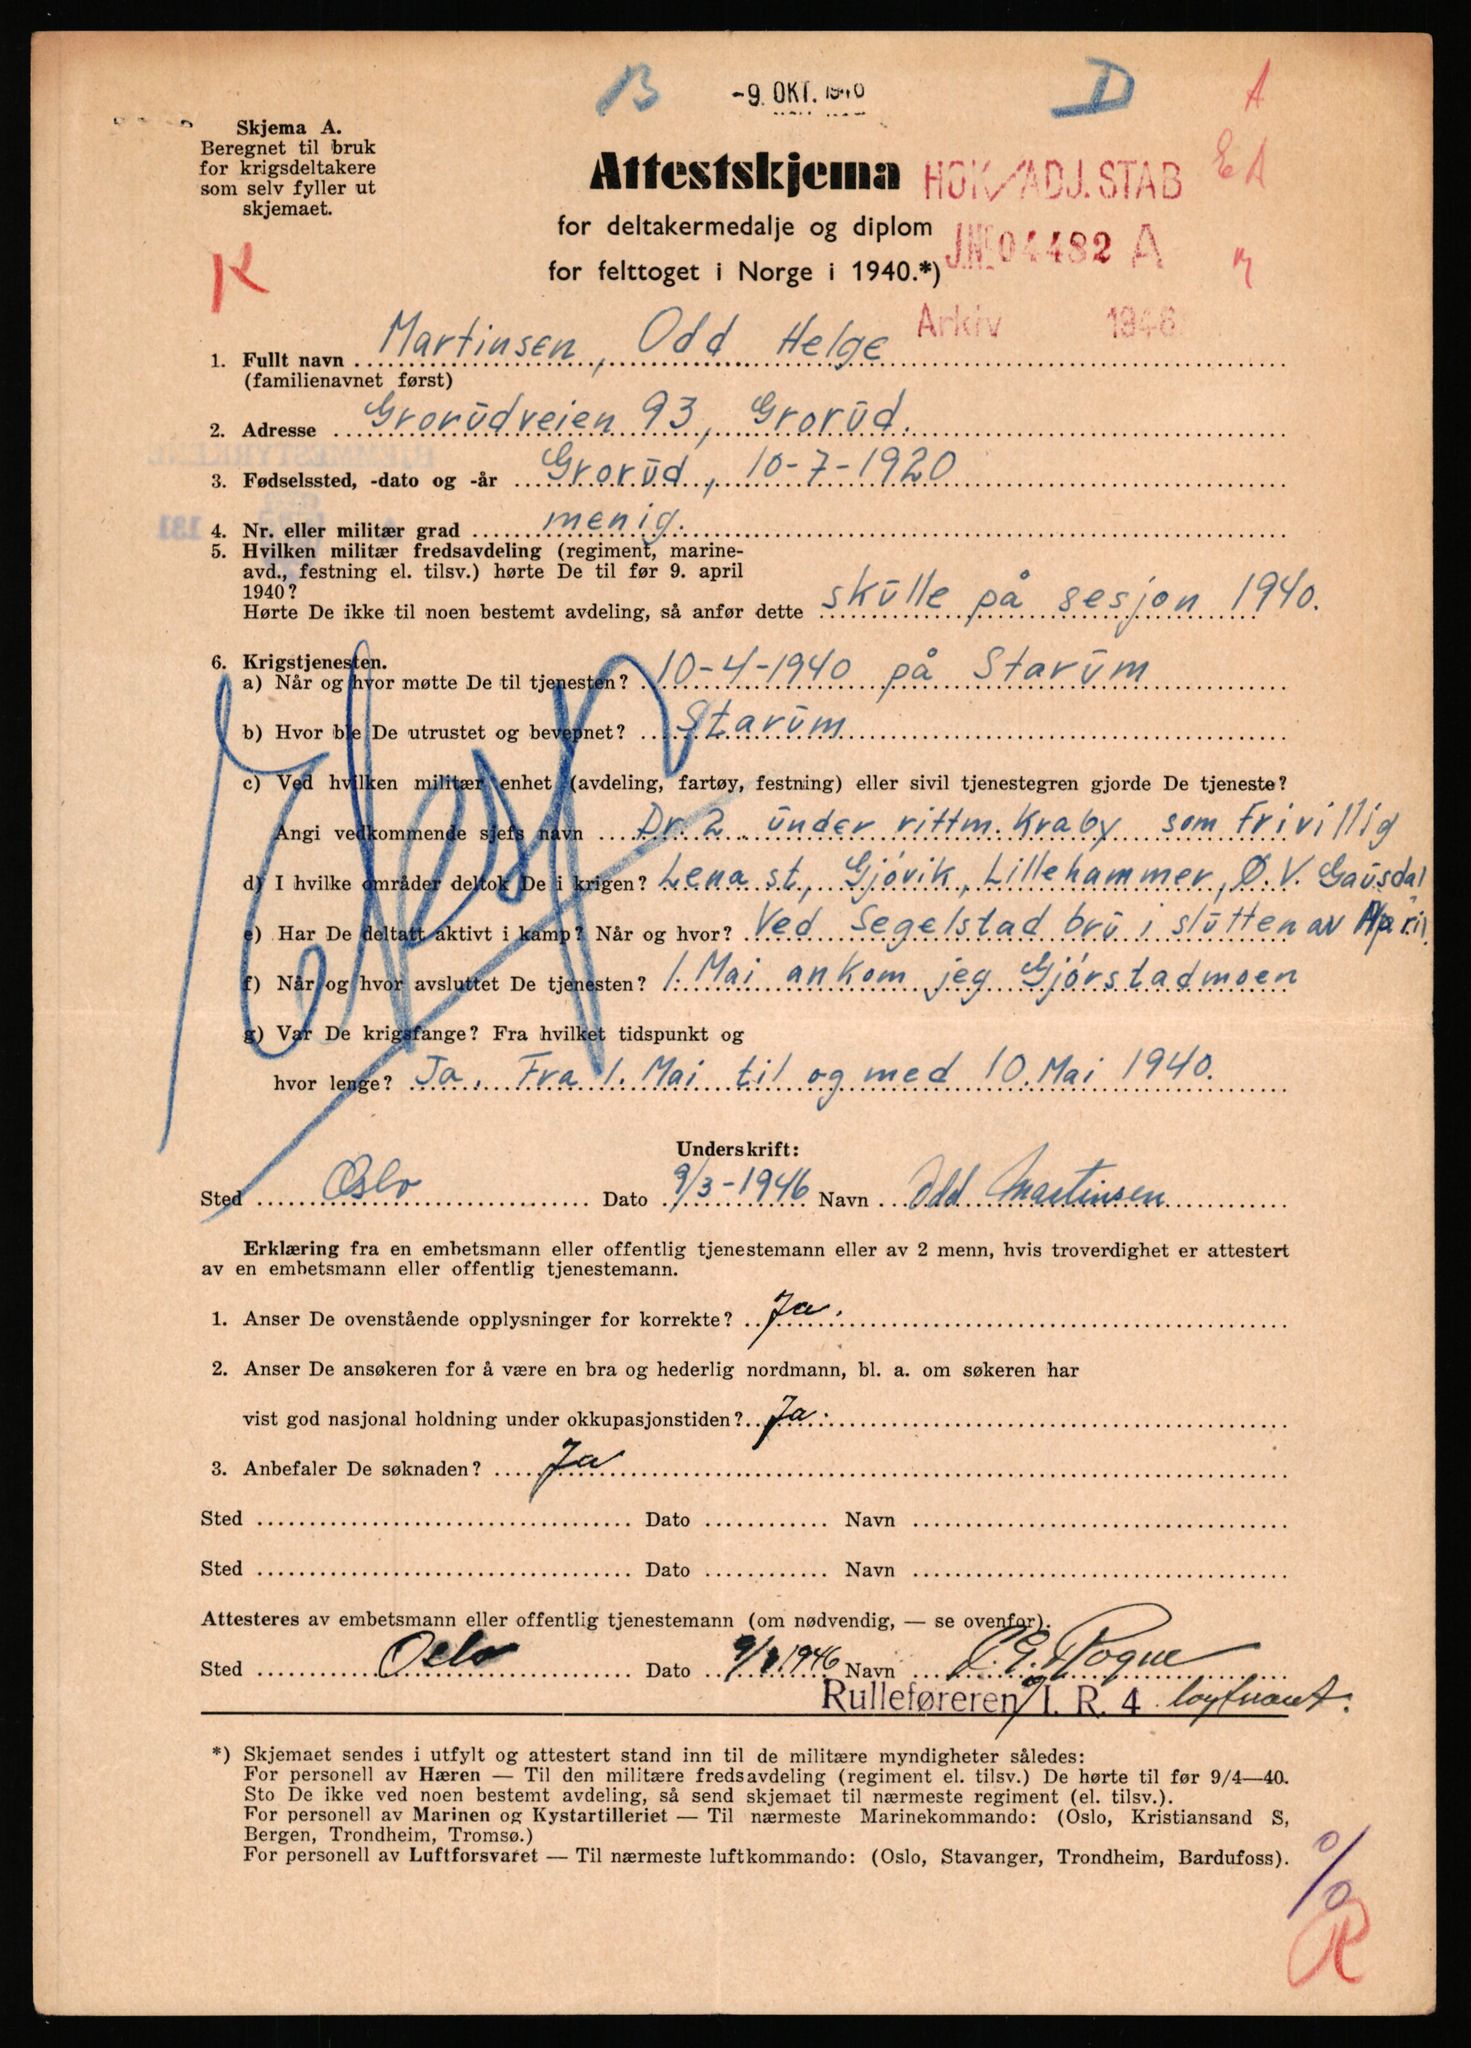 B
-9. OKT. 1940
D
A
Skjema A.
Beregnet til bruk
for krigsdeltakere
som selv fyller ut
skjemaet.
Attestskjema
for deltakermedalje og diplom
for felttoget i Norge i 1940.*)
HOK/ADJ.STAB
EA
J.Nr. 04482 A
K
Arkiv 1946
1. Fullt navn Martinsen, Odd Helge
(familienavnet først)
2. Adresse Grorudveien 93, Grorud.
3. Fødselssted, -dato og -år Grorud, 10-7-1920
4. Nr. eller militær grad menig.
5. Hvilken militær fredsavdeling (regiment, marine-
avd., festning el. tilsv.) hørte De til før 9. april
1940?
Hørte De ikke til noen bestemt avdeling, så anfør dette skulle på sesjon 1940.
6. Krigstjenesten.
a) Når og hvor møtte De til tjenesten? 10-4-1940 på Starum
b) Hvor ble De utrustet og bevepnet? Starum
c) Ved hvilken militær enhet (avdeling, fartøy, festning) eller sivil tjenestegren gjorde De tjeneste?
Angi vedkommende sjefs navn Dr. 2 under rittm. Kraby som frivillig
d) I hvilke områder deltok De i krigen? Lena st, Gjøvik, Lillehammer, Ø. V. Gausdal
e) Har De deltatt aktivt i kamp? Når og hvor? Ved Segelstad bru i slutten av April
f) Når og hvor avsluttet De tjenesten? 1. Mai ankom jeg Gjørstadmoen
g) Var De krigsfange? Fra hvilket tidspunkt og
hvor lenge? Ja. Fra 1. Mai til og med 10. Mai 1940.
Underskrift:
Sted Oslo Dato 9/3-1946 Navn Odd Martinsen
Erklæring fra en embetsmann eller offentlig tjenestemann eller av 2 menn, hvis troverdighet er attestert
av en embetsmann eller offentlig tjenestemann.
1. Anser De ovenstående opplysninger for korrekte? Ja.
2. Anser De ansøkeren for å være en bra og hederlig nordmann, bl. a. om søkeren har
vist god nasjonal holdning under okkupasjonstiden? Ja.
3. Anbefaler De søknaden? Ja
Sted Dato Navn
Sted Dato Navn
Attesteres av embetsmann eller offentlig tjenestemann (om nødvendig, — se ovenfor).
Sted Oslo Dato 1946 Navn Rogne
Rulleføreren I. R. 4 løytnant.
*) Skjemaet sendes i utfylt og attestert stand inn til de militære myndigheter således:
For personell av Hæren — Til den militære fredsavdeling (regiment el. tilsv.) De hørte til før 9/4—40.
Sto De ikke ved noen bestemt avdeling, så send skjemaet til nærmeste regiment (el. tilsv.).
For personell av Marinen og Kystartilleriet — Til nærmeste Marinekommando: (Oslo, Kristiansand S,
Bergen, Trondheim, Tromsø.)
For personell av Luftforsvaret — Til nærmeste luftkommando: (Oslo, Stavanger, Trondheim, Bardufoss).
R